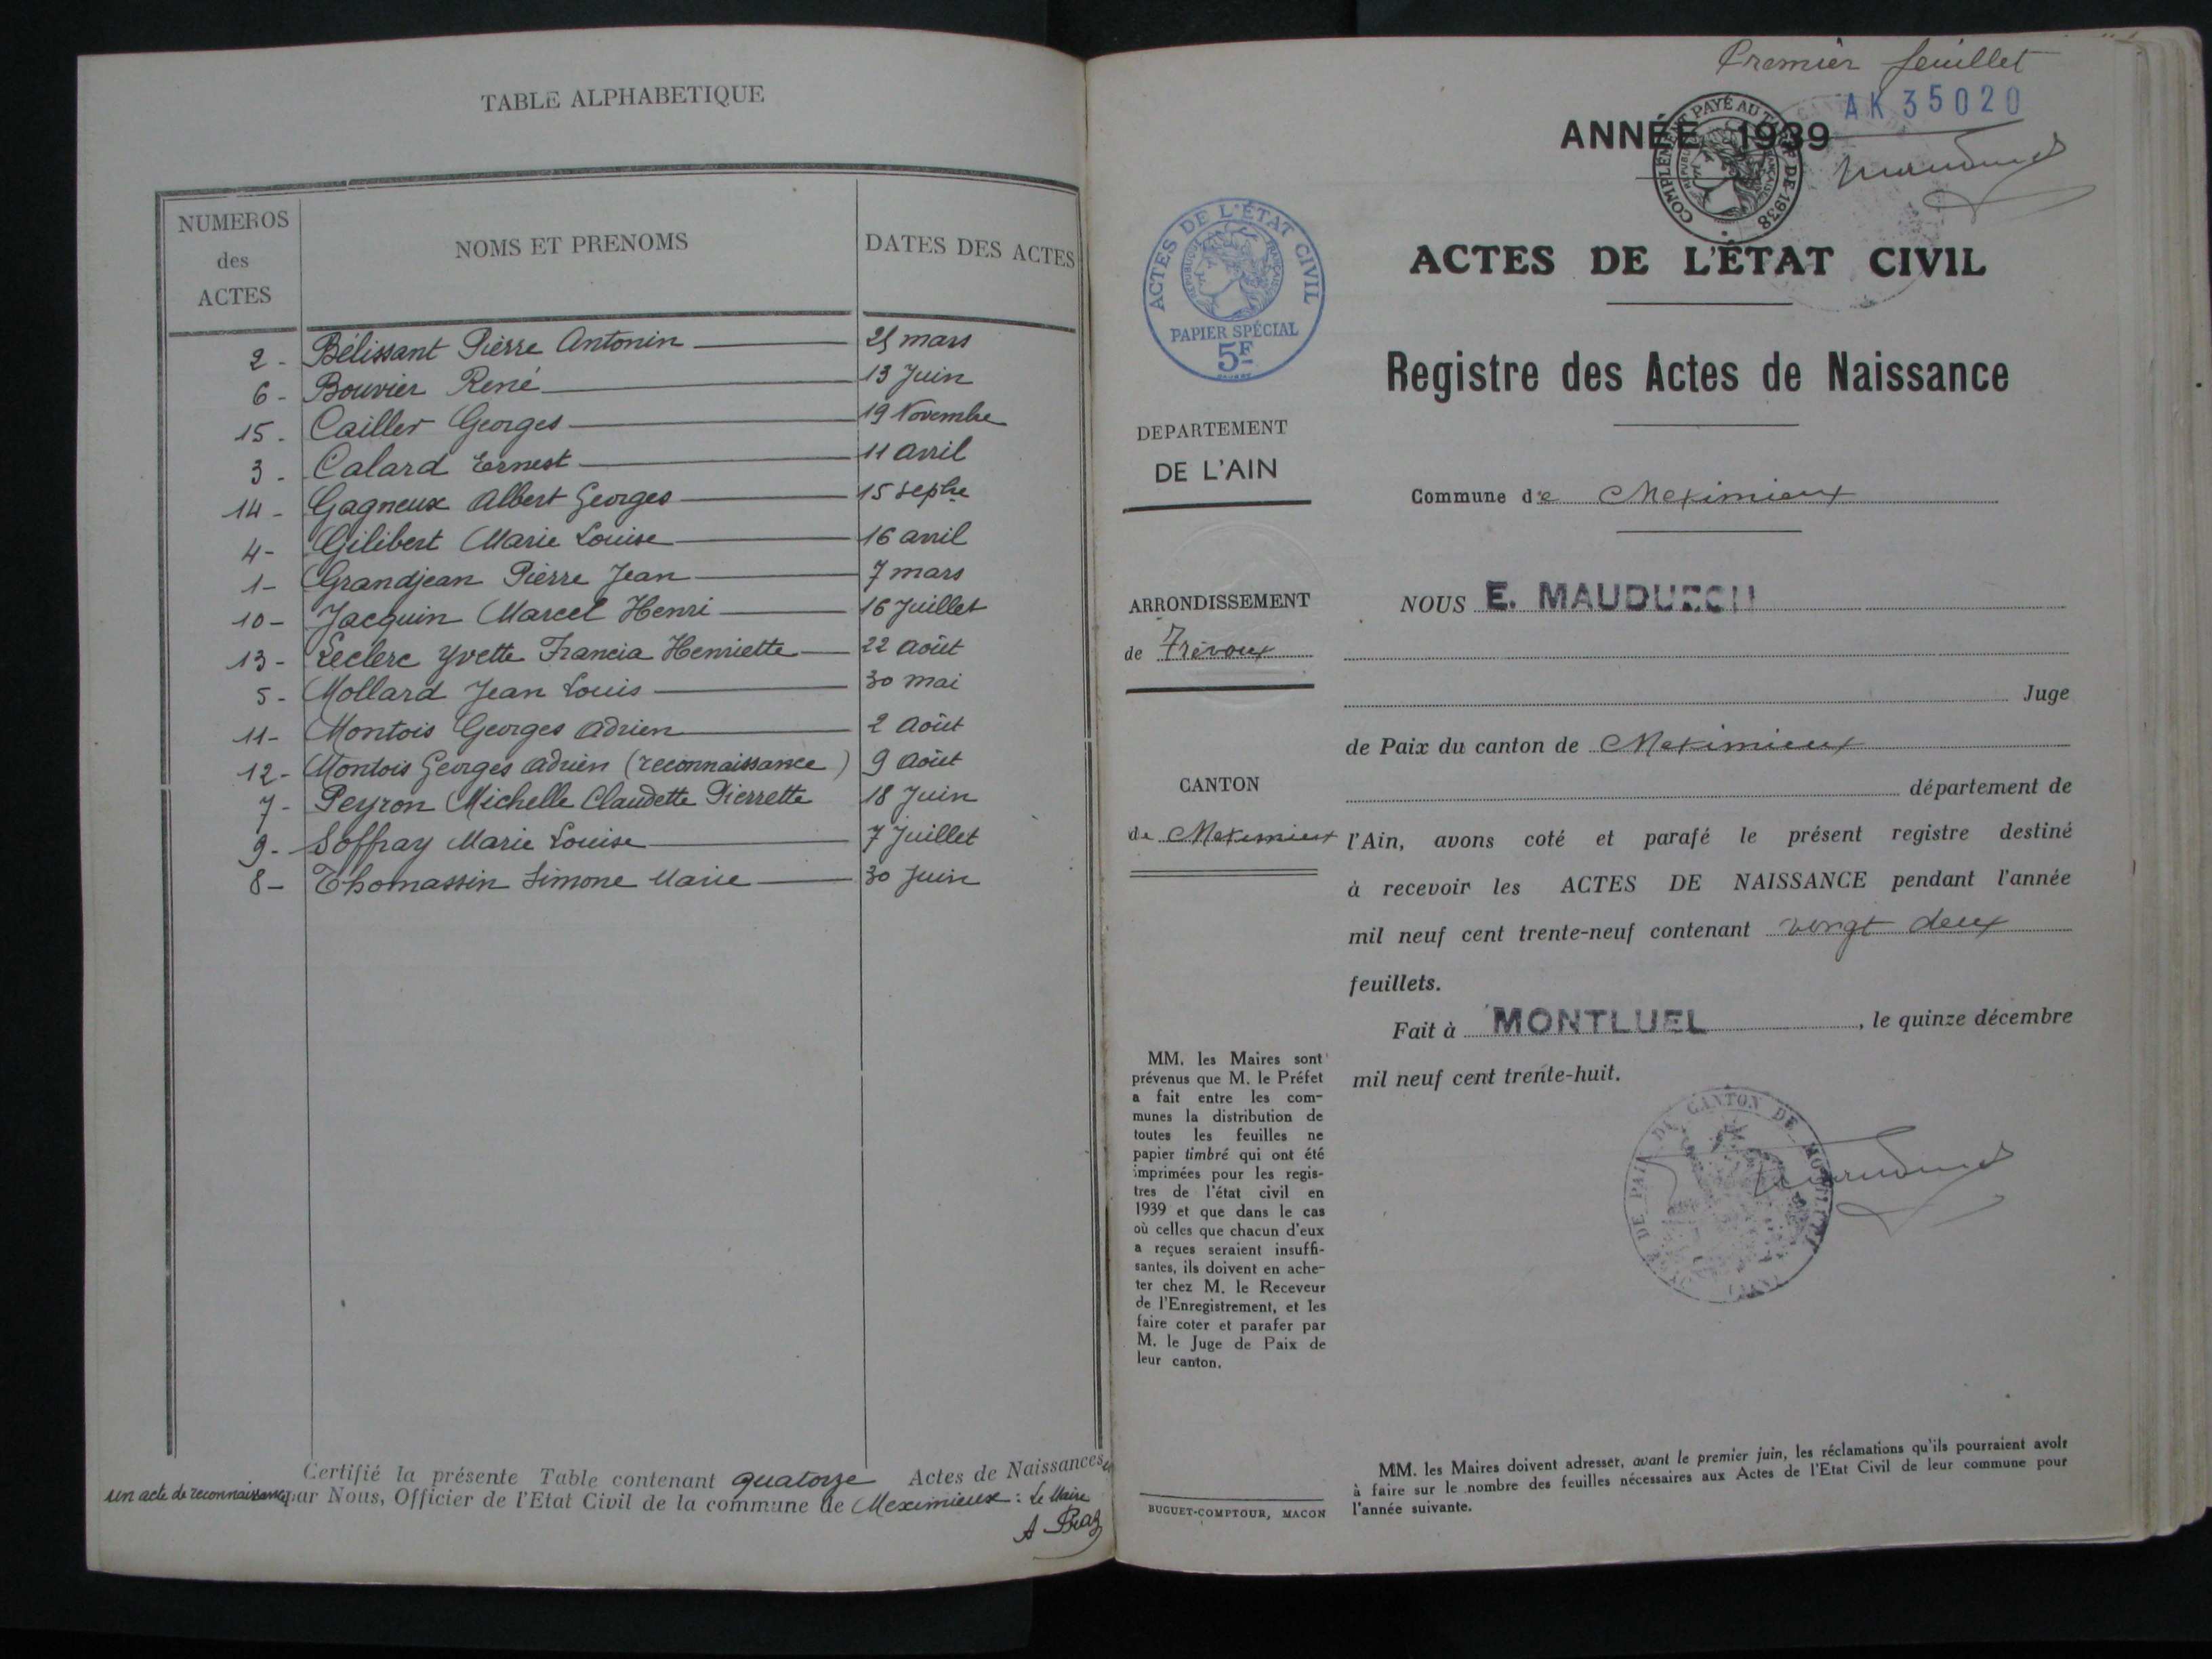 TABLE ALPHABETIQUE
NUMEROS des ACTES
NOMS ET PRENOMS
DATES DES ACTES
2 - Bélissant Pierre Antonin 25 mars
6 - Bouvier René 13 Juin
15 - Cailler Georges 19 Novembre
3 - Calard Ernest 11 avril
14 - Gagneux Albert Georges 15 sepbre
4 - Gilibert Marie Louise 16 avril
1 - Grandjean Pierre Jean 7 mars
10 - Jacquin Marcel Henri 16 Juillet
13 - Leclerc Yvette Francia Henriette 22 Août
5 - Mollard Jean Louis 30 mai
11 - Montois Georges Adrien 2 Août
12 - Montois Georges Adrien (reconnaissance) 9 Août
7 - Peyron Michelle Claudette Pierrette 18 Juin
9 - Soffray Marie Louise 7 Juillet
8 - Thomassin Simone Marie 30 Juin
Certifié la présente Table contenant quatorze Actes de Naissances,
un acte de reconnaissance par Nous, Officier de l'Etat Civil de la commune de Meximieux : Le Maire
Premier feuillet
AK 35020
ANNÉE 1939
COMPLEMENT PAYÉ AU TARIF DE 1938
ACTES DE L'ÉTAT CIVIL
RÉPUBLIQUE FRANÇAISE
PAPIER SPÉCIAL
5F
ACTES DE L'ÉTAT CIVIL
Registre des Actes de Naissance
DEPARTEMENT
DE L'AIN
Commune de Meximieux
ARRONDISSEMENT
de Trévoux
NOUS E. MAUDUECH
Juge
de Paix du canton de Meximieux
CANTON
de Meximieux
département de
l'Ain, avons coté et parafé le présent registre destiné
à recevoir les ACTES DE NAISSANCE pendant l'année
mil neuf cent trente-neuf contenant vingt deux
feuillets.
Fait à MONTLUEL, le quinze décembre
mil neuf cent trente-huit.
MM. les Maires sont
prévenus que M. le Préfet
a fait entre les com-
munes la distribution de
toutes les feuilles ne
papier timbré qui ont été
imprimées pour les regis-
tres de l'état civil en
1939 et que dans le cas
où celles que chacun d'eux
a reçues seraient insuffi-
santes, ils doivent en ache-
ter chez M. le Receveur
de l'Enregistrement, et les
faire coter et parafer par
M. le Juge de Paix de
leur canton.
BUGUET-COMPTOUR, MACON
MM. les Maires doivent adresser, avant le premier juin, les réclamations qu'ils pourraient avoir
à faire sur le nombre des feuilles nécessaires aux Actes de l'Etat Civil de leur commune pour
l'année suivante.
DE PAIX DU CANTON DE MONTLUEL
(AIN)